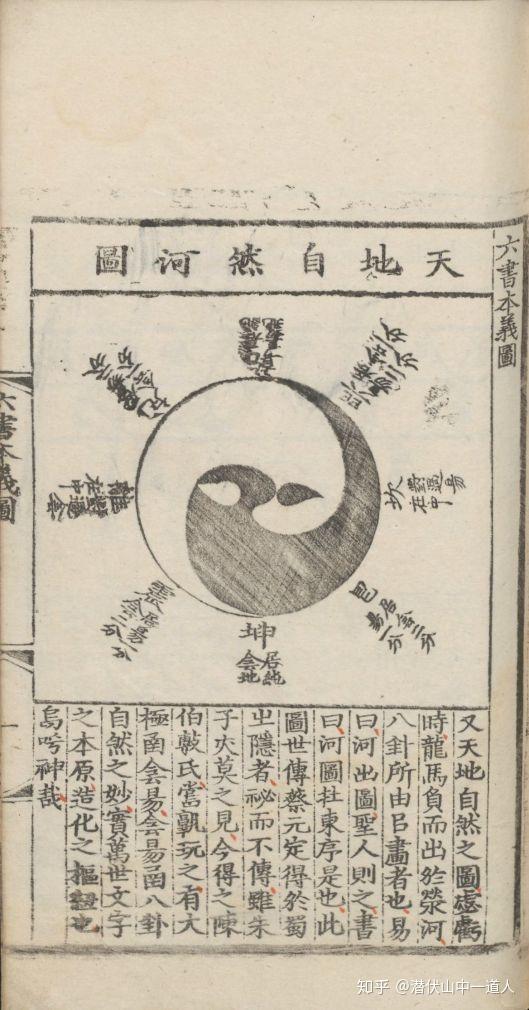 六書本義圖
天地自然河圖
坎
對過昜
在中
坤
居純
侌地
震
居昜一分
侌二分
離
對過侌
在中
又天地自然之圖虙戲
時龍馬負而出於滎河
八卦所由㠯畫者也易
曰河出圖聖人則之書
曰河圖在東序是也此
圖世傳蔡元定得於蜀
㞢隱者祕而不傳雖朱
子亦莫之見今得之陳
伯敷氏嘗玩之有大
極函侌昜侌昜函八卦
自然之妙實萬世文字
之本原造化之樞紐也
烏呼神哉
六書本義圖
知乎 @潜伏山中一道人